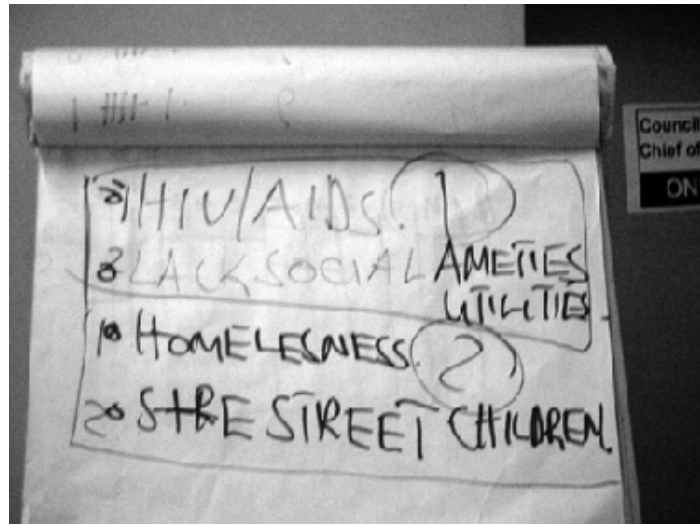 HIV/AIDS. 1
LACK SOCIAL AMETIES
UTILITIES.
HOMELESNESS. 2
STRE STREET CHILDREN.
Council
Chief of
ON